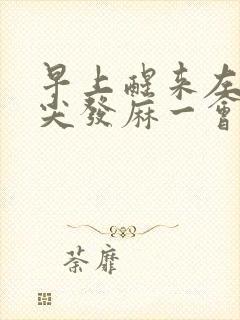 早上醒来左
尖發麻一會
荼靡